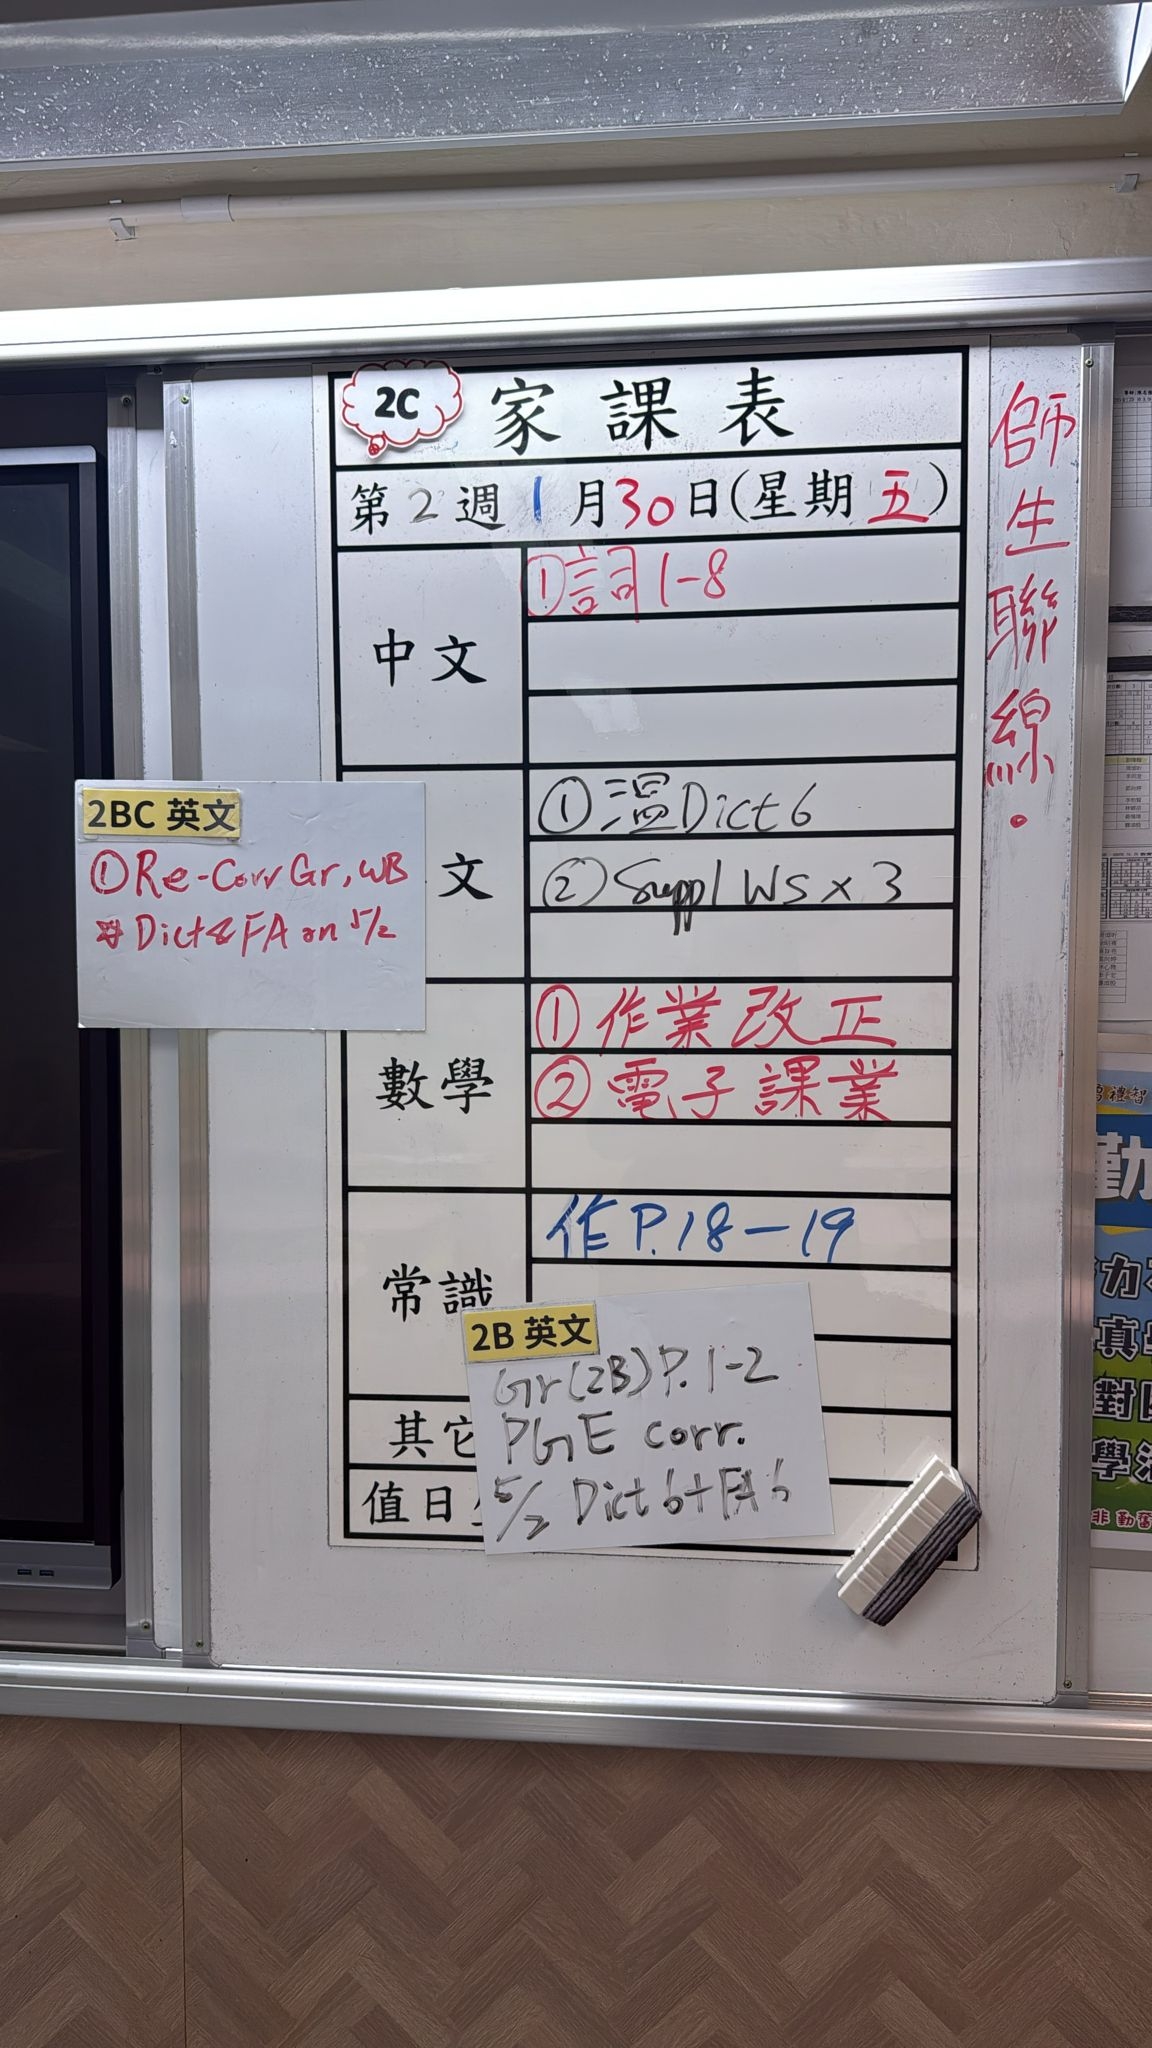 2C 家課表
第2週 1月30日(星期五)
中文
①詞1-8
文
①溫Dict 6
②Suppl WS x 3
2BC 英文
①Re-Corr Gr, WB
Dict & FA on 5/2
數學
①作業改正
②電子課業
常識
作P.18-19
2B 英文
Gr(2B)P.1-2
PGE corr.
5/2 Dict 6+FA 6
其它
值日
師生聯線.
禮智
勤
力
真
對
學
非 勤奮